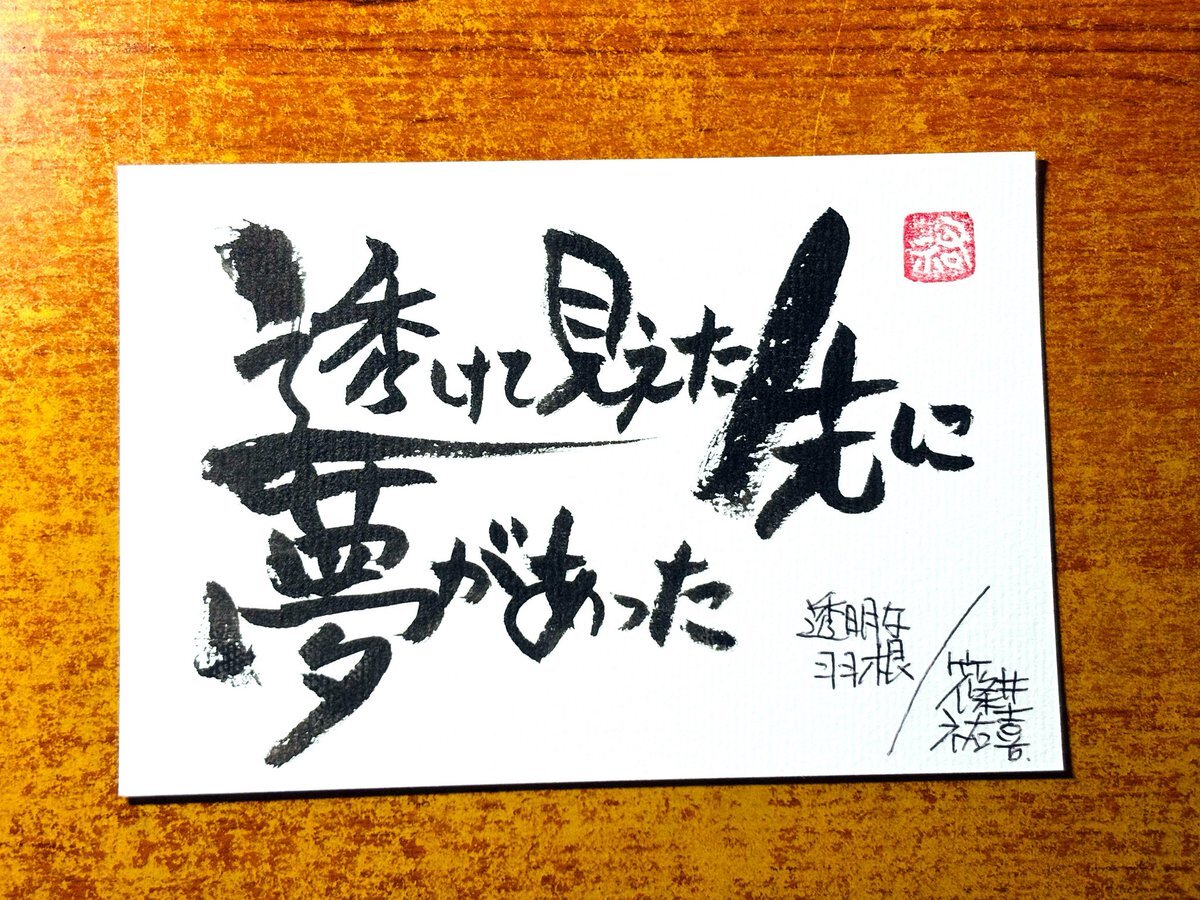 透けて見えた先に
夢があった
透明な
羽根
篠井
祐喜